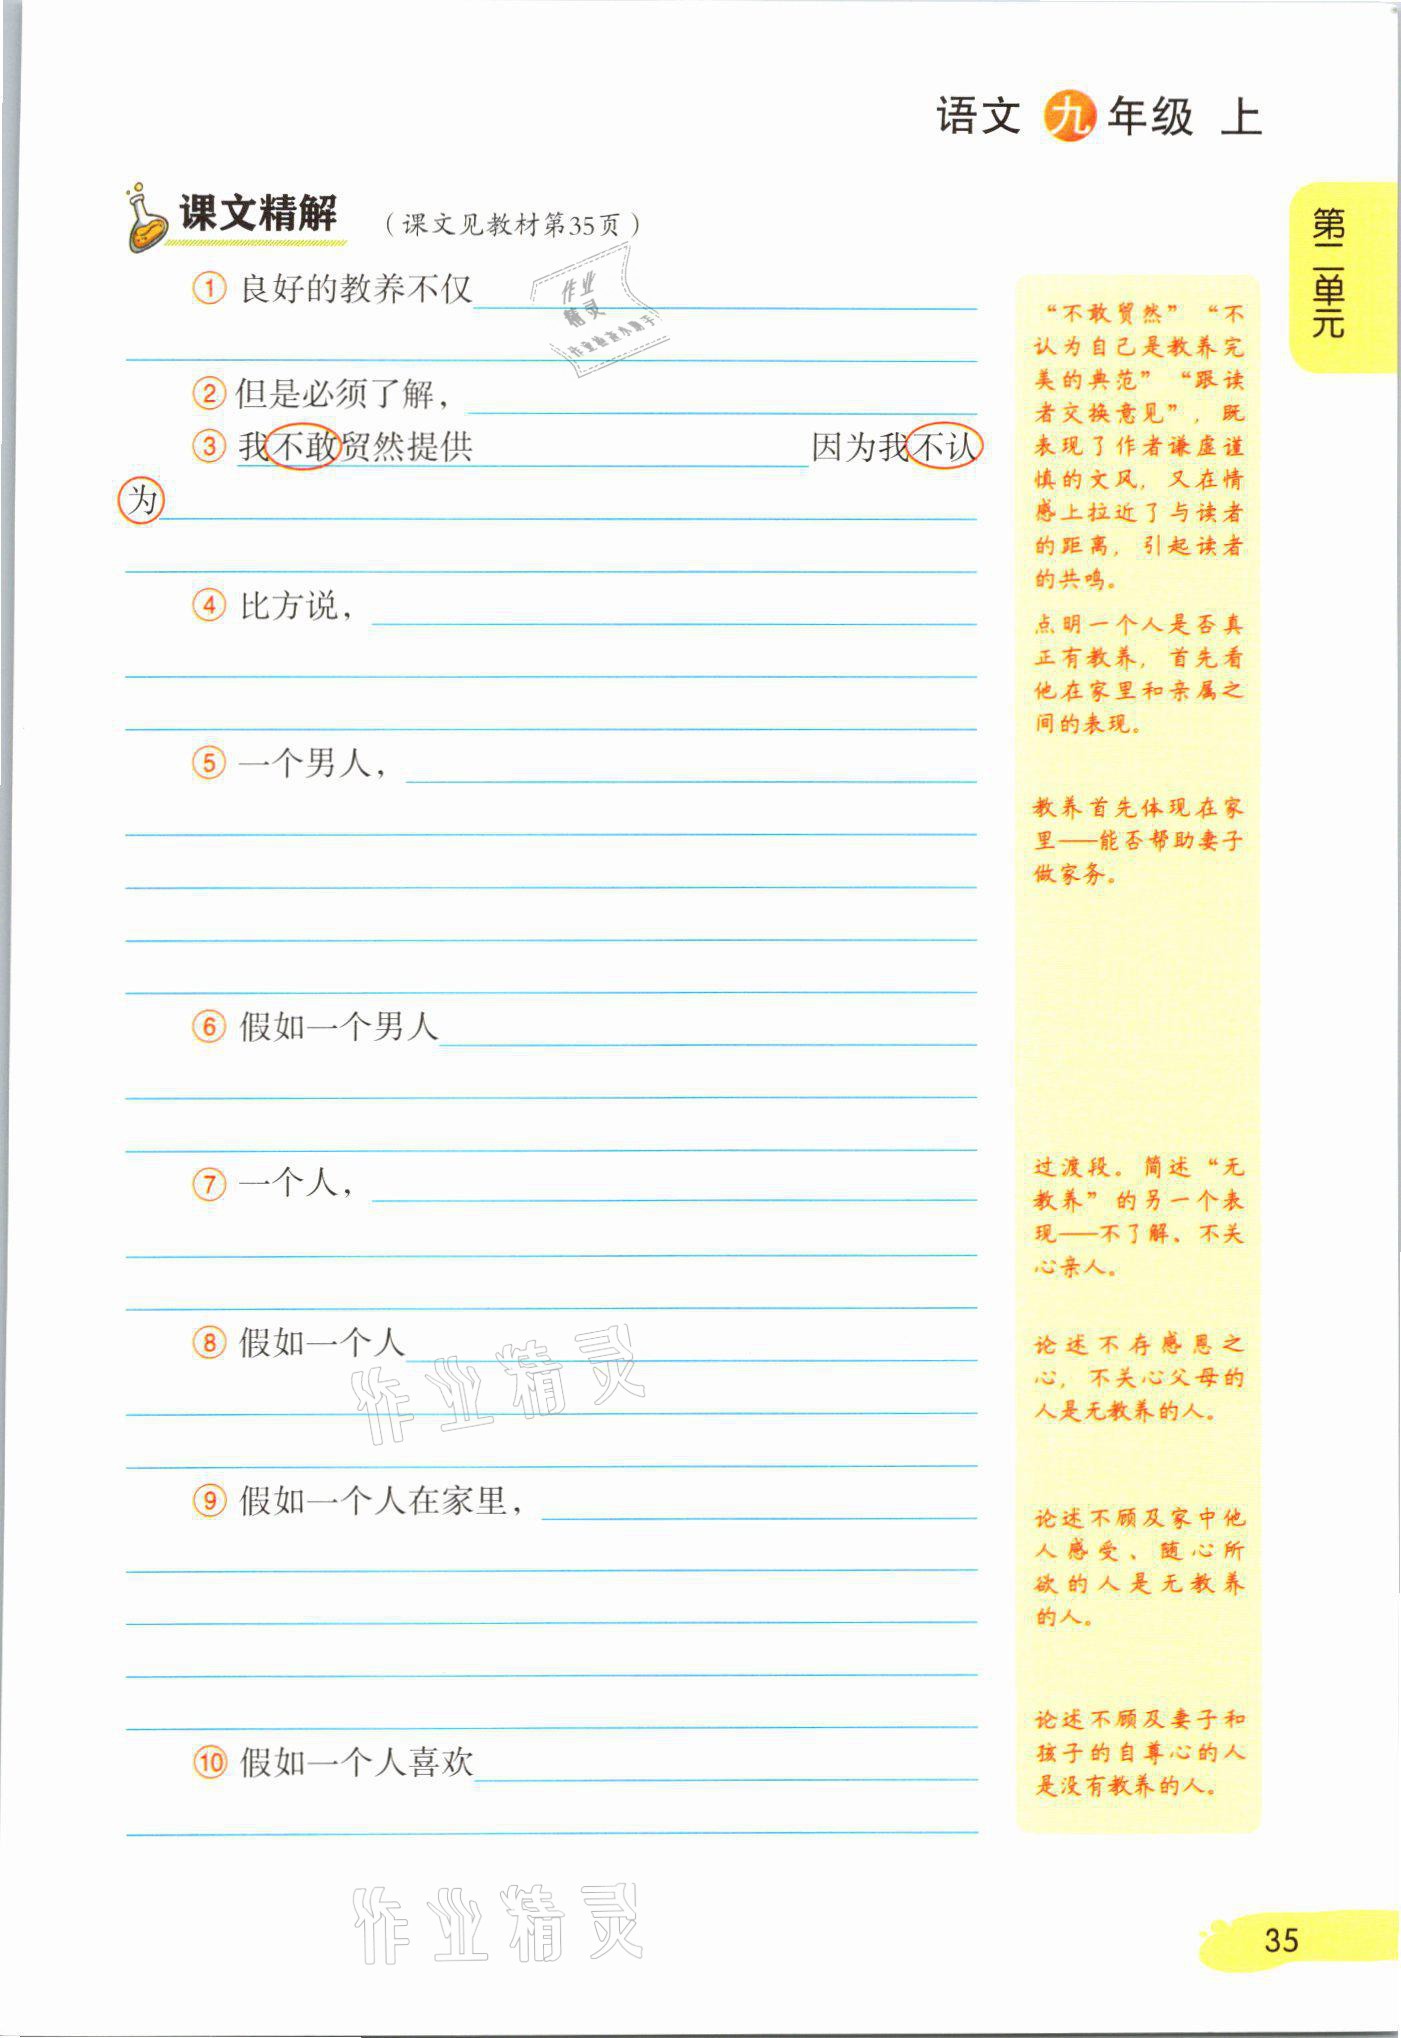 语文 九 年级 上
第二单元
课文精解 （课文见教材第35页）
① 良好的教养不仅
② 但是必须了解，
③ 我不敢贸然提供 因为我不认
为
④ 比方说，
⑤ 一个男人，
⑥ 假如一个男人
⑦ 一个人，
⑧ 假如一个人
⑨ 假如一个人在家里，
⑩ 假如一个人喜欢
“不敢贸然”“不
认为自己是教养完
美的典范”“跟读
者交换意见”，既
表现了作者谦虚谨
慎的文风，又在情
感上拉近了与读者
的距离，引起读者
的共鸣。
点明一个人是否真
正有教养，首先看
他在家里和亲属之
间的表现。
教养首先体现在家
里——能否帮助妻子
做家务。
过渡段。简述“无
教养”的另一个表
现——不了解、不关
心亲人。
论述不存感恩之
心，不关心父母的
人是无教养的人。
论述不顾及家中他
人感受、随心所
欲的人是无教养
的人。
论述不顾及妻子和
孩子的自尊心的人
是没有教养的人。
作业
精灵
作业检查小助手
作业精灵
作业精灵
35